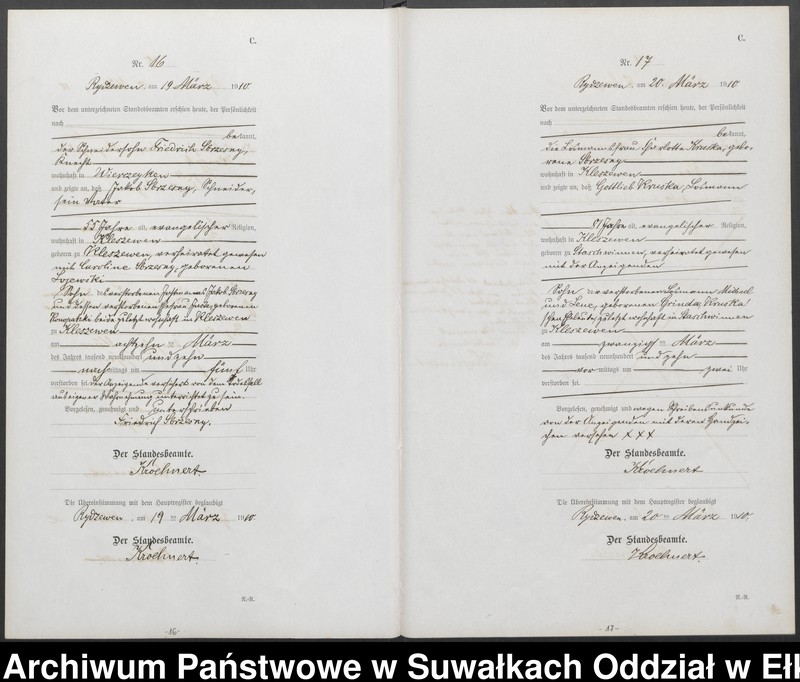 C.
Nr. 16
Rydzewen, am 19 März 1910.
Vor dem unterzeichneten Standesbeamten erschien heute, der Persönlichkeit
nach
bekannt,
der Schneidersohn Friedrich
Knecht
wohnhaft in Wierzeyken
und zeigte an, daß Jakob Schneider,
sein Vater
55 Jahre alt, evangelischer Religion,
wohnhaft in Kleszewen
geboren zu Kleszewen, verheiratet gewesen
mit Caroline geborenen
Sohn des verstorbenen Jakob
und dessen verstorbenen Ehefrau geborenen
beide zuletzt wohnhaft in Kleszewen
zu Kleszewen
am achtzehn ten März
des Jahres tausend neunhundert und zehn
nachmittags um fünf Uhr
verstorben sei. Der Anzeigende versichert von dem Todesfall
aus eigener Wahrnehmung unterrichtet zu sein.
Vorgelesen, genehmigt und unterschrieben
Friedrich
Der Standesbeamte.
Kroehnert
Die Übereinstimmung mit dem Hauptregister beglaubigt
Rydzewen, am 19 ten März 1910.
Der Standesbeamte.
Kroehnert.
R.-R.
-16-
C.
Nr. 17
Rydzewen, am 20. März 1910
Vor dem unterzeichneten Standesbeamten erschien heute, der Persönlichkeit
nach
bekannt,
die Losmannsfrau Charlotte Kruska, gebo-
rene
wohnhaft in Kleszewen
und zeigte an, daß Gottlieb Kruska, Losmann
51 Jahre alt, evangelischer Religion,
wohnhaft in Kleszewen
geboren zu Staschwinnen, verheiratet gewesen
mit der Anzeigenden
Sohn der verstorbenen Losmann Michael
und Lene, geborenen Grinda, Kruska
schen Eheleute, zuletzt wohnhaft in Staschwinnen
zu Kleszewen
am zwanzigsten März
des Jahres tausend neunhundert und zehn
vormittags um zwei Uhr
verstorben sei.
Vorgelesen, genehmigt und wegen Schreibensunkunde
von der Anzeigenden mit deren Handzei-
chen versehen x x x
Der Standesbeamte.
Kroehnert
Die Übereinstimmung mit dem Hauptregister beglaubigt
Rydzewen, am 20 ten März 1910.
Der Standesbeamte.
Kroehnert.
R.-R.
-17-
Archiwum Państwowe w Suwałkach Oddział w Ełk